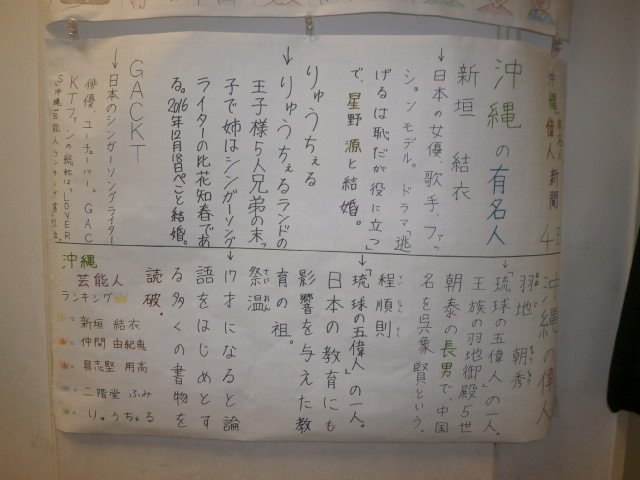 沖縄有名人
偉人新聞
沖縄の有名人
新垣 結衣
→日本の女優、歌手、ファッ
ション モデル。ドラマ「逃
げるは恥だが役に立つ」
で、星野 源と結婚。
りゅうちぇる
→りゅうちぇるランドの
王子様5人兄弟の末っ
子で姉はシンガーソング
ライターの比花知春であ
る。2016年12月18日ぺこと結婚。
GACKT
→日本のシンガーソングライター
俳優、ユーチューバー、GAC
KTファンの総称は「LOVER
沖縄の偉人
羽地 朝秀
→「琉球の五偉人」の一人。
王族の羽地御殿5世
朝泰の長男で、中国
名を呉象賢という。
程順則
→「琉球の五偉人」の一人。
日本の教育にも
影響を与えた教
育の祖。
祭温
→17才になると論
語をはじめとす
る多くの書物を
読破。
沖縄
芸能人
ランキング
新垣 結衣
仲間 由紀恵
具志堅 用高
二階堂 ふみ
りゅうちぇる